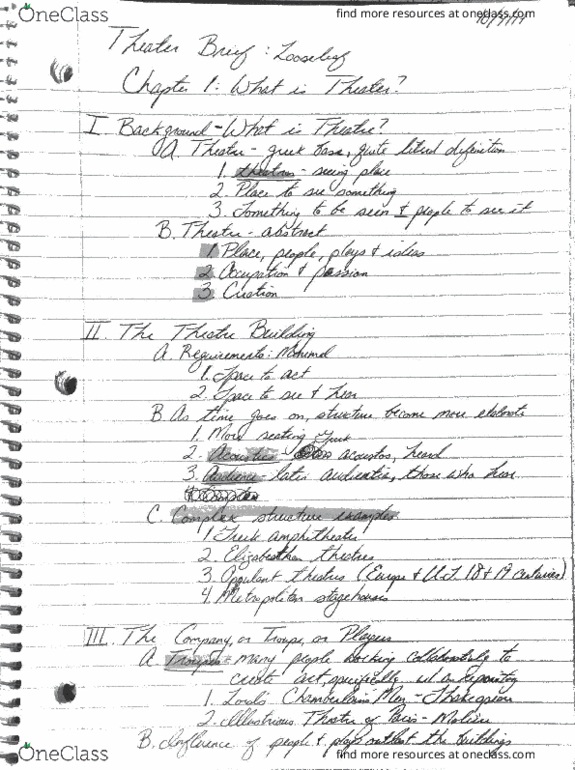 OneClass
find more resources at oneclass.com
Theater Brief: Looseleaf
Chapter 1: What is Theater?
I. Background - What is Theatre?
A. Theatre - greek base, quite literal definition
1. theatron - seeing place
2. Place to see something
3. Something to be seen & people to see it
B. Theatre - abstract
1. Place, people, plays & ideas
2. Occupation & passion
3. Creation
II. The Theatre Building
A. Requirements: Minimal
1. Space to act
2. Space to see & hear
B. As time goes on, structure become more elaborate
1. More seating
2. Acoustics - Greek acoustos, heard
3. Audience - latin audientia, those who hear
C. Complex structure examples
1. Greek amphitheater
2. Elizabethan theatres
3. Opulent theatres (Europe & U.S. 18 & 19 centuries)
4. Metropolitan stagehouses
III. The Company, or Troupe, or Players
A. Troupes = many people working collaboratively to
create art, specifically
1. Lord's Chamberlain's Men - Shakespeare
2. Illustrious Theater of Paris - Moliere
B. Influence of people & plays outlast the buildings
OneClass
find more resources at oneclass.com